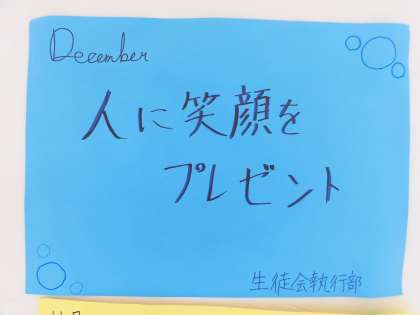 December
人に笑顔を
プレゼント
生徒会執行部